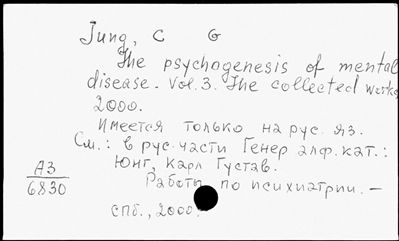 Jung, C G
The psychogenesis of mental
disease. Vol. 3. The collected works
2000.
Имеется только на рус. яз.
См.: в рус. части Генер алф. кат.:
Юнг, Карл Густав.
АЗ
6830
Работы по психиатрии. –
СПб., 2000.